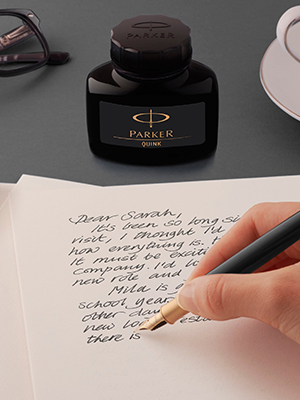 PARKER
PARKER
QUINK
Dear Sarah,
It's been so long si
visit, I thought I'd
how everything is.
It must be exciti
company. I'd lo
new role and
Mild is a
school year
other da
new lo
there is